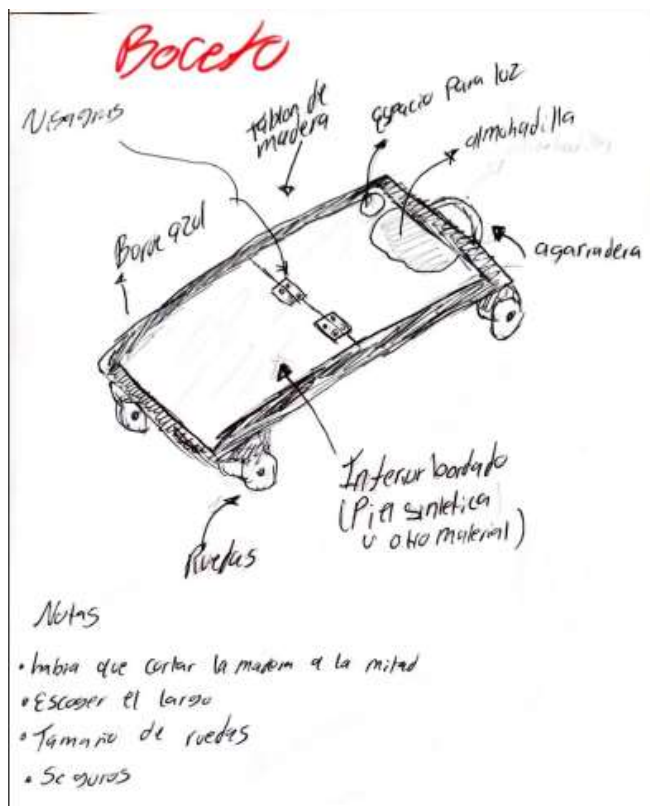 Boceto
Visagras
tablon de
madera
espacio para luz
almohadilla
Borde azul
agarradera
Interior bordado
(Piel sintetica
u otro material)
Ruedas
Notas
• habia que cortar la madera a la mitad
• Escoger el largo
• Tamaño de ruedas
• Seguros